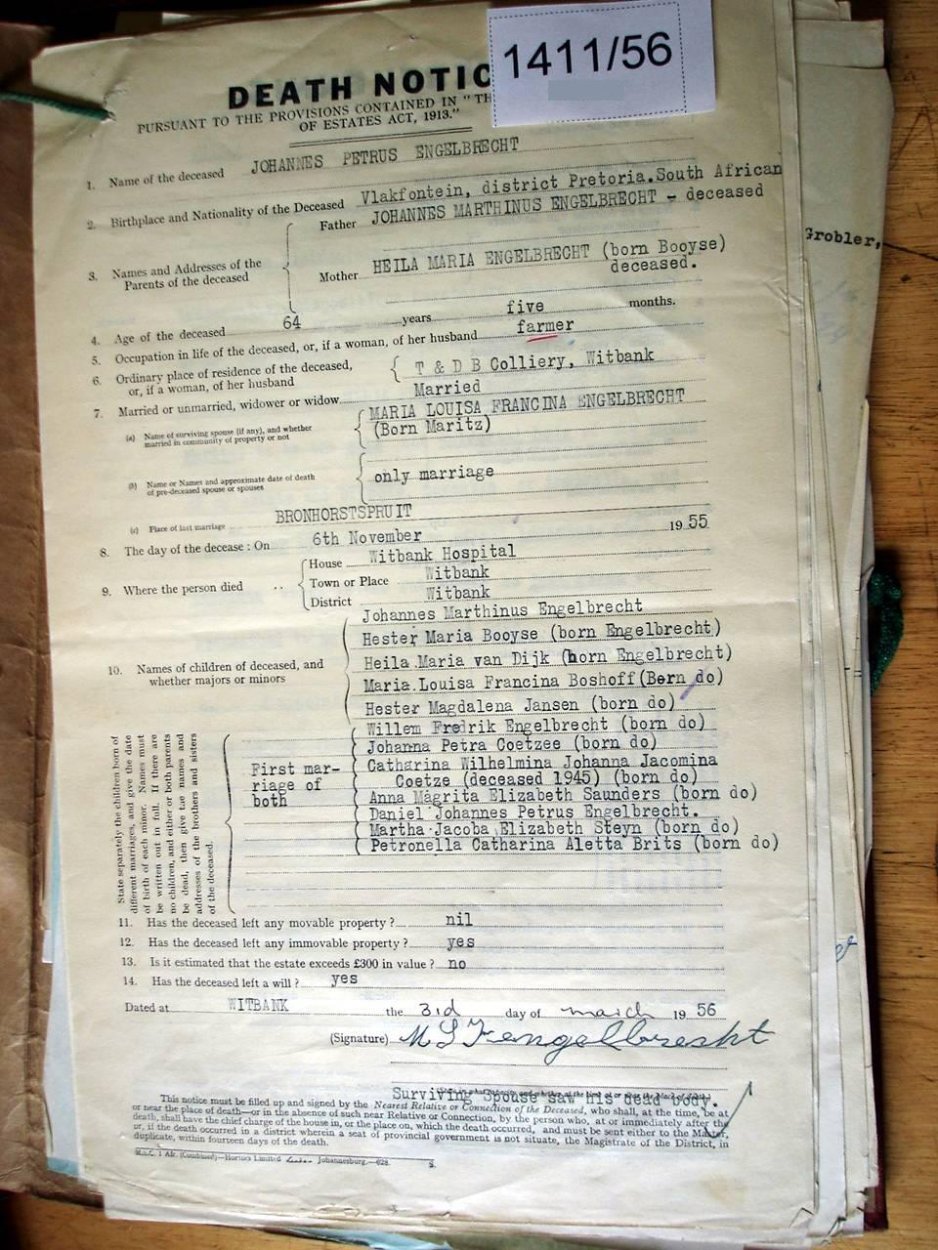 1411/56
DEATH NOTIC
PURSUANT TO THE PROVISIONS CONTAINED IN "TH
OF ESTATES ACT, 1913."
1. Name of the deceased JOHANNES PETRUS ENGELBRECHT
2. Birthplace and Nationality of the Deceased Vlakfontein, district Pretoria.South African
3. Names and Addresses of the Parents of the deceased
Father JOHANNES MARTHINUS ENGELBRECHT - deceased
Mother HEILA MARIA ENGELBRECHT (born Booyse)
deceased.
4. Age of the deceased 64 years five months.
5. Occupation in life of the deceased, or, if a woman, of her husband farmer
6. Ordinary place of residence of the deceased,
or, if a woman, of her husband T & D B Colliery, Witbank
7. Married or unmarried, widower or widow Married
(a) Name of surviving spouse (if any), and whether
married in community of property or not
MARIA LOUISA FRANCINA ENGELBRECHT
(Born Maritz)
(b) Name or Names and approximate date of death
of pre-deceased spouse or spouses
only marriage
(c) Place of last marriage BRONHORSTSPRUIT
8. The day of the decease : On 6th November 1955
9. Where the person died ..
House Witbank Hospital
Town or Place Witbank
District Witbank
10. Names of children of deceased, and
whether majors or minors
Johannes Marthinus Engelbrecht
Hester Maria Booyse (born Engelbrecht)
Heila Maria van Dijk (born Engelbrecht)
Maria Louisa Francina Boshoff(Born do)
Hester Magdalena Jansen (born do)
Willem Fredrik Engelbrecht (born do)
Johanna Petra Coetzee (born do)
Catharina Wilhelmina Johanna Jacomina
Coetze (deceased 1945) (born do)
Anna Magrita Elizabeth Saunders (born do)
Daniel Johannes Petrus Engelbrecht.
Martha Jacoba Elizabeth Steyn (born do)
Petronella Catharina Aletta Brits (born do)
First mar-
riage of
both
State separately the children born of
different marriages, and give the date
of birth of each minor. Names must
be written out in full. If there are
no children, and either or both parents
be dead, then give the names and
addresses of the brothers and sisters
of the deceased.
11. Has the deceased left any movable property? nil
12. Has the deceased left any immovable property? yes
13. Is it estimated that the estate exceeds £300 in value? no
14. Has the deceased left a will? yes
Dated at WITBANK the 3rd day of march 1956
(Signature)
Surviving Spouse saw his dead body.
This notice must be filled up and signed by the Nearest Relative or Connection of the Deceased, who shall, at the time, be at
or near the place of death—or in the absence of such near Relative or Connection, by the person who, at or immediately after the
death, shall have the chief charge of the house in, or the place on, which the death occurred, and must be sent either to the Master,
or, if the death occurred in a district wherein a seat of provincial government is not situate, the Magistrate of the District, in
duplicate, within fourteen days of the death.
Johannesburg.—
S.
Grobler,